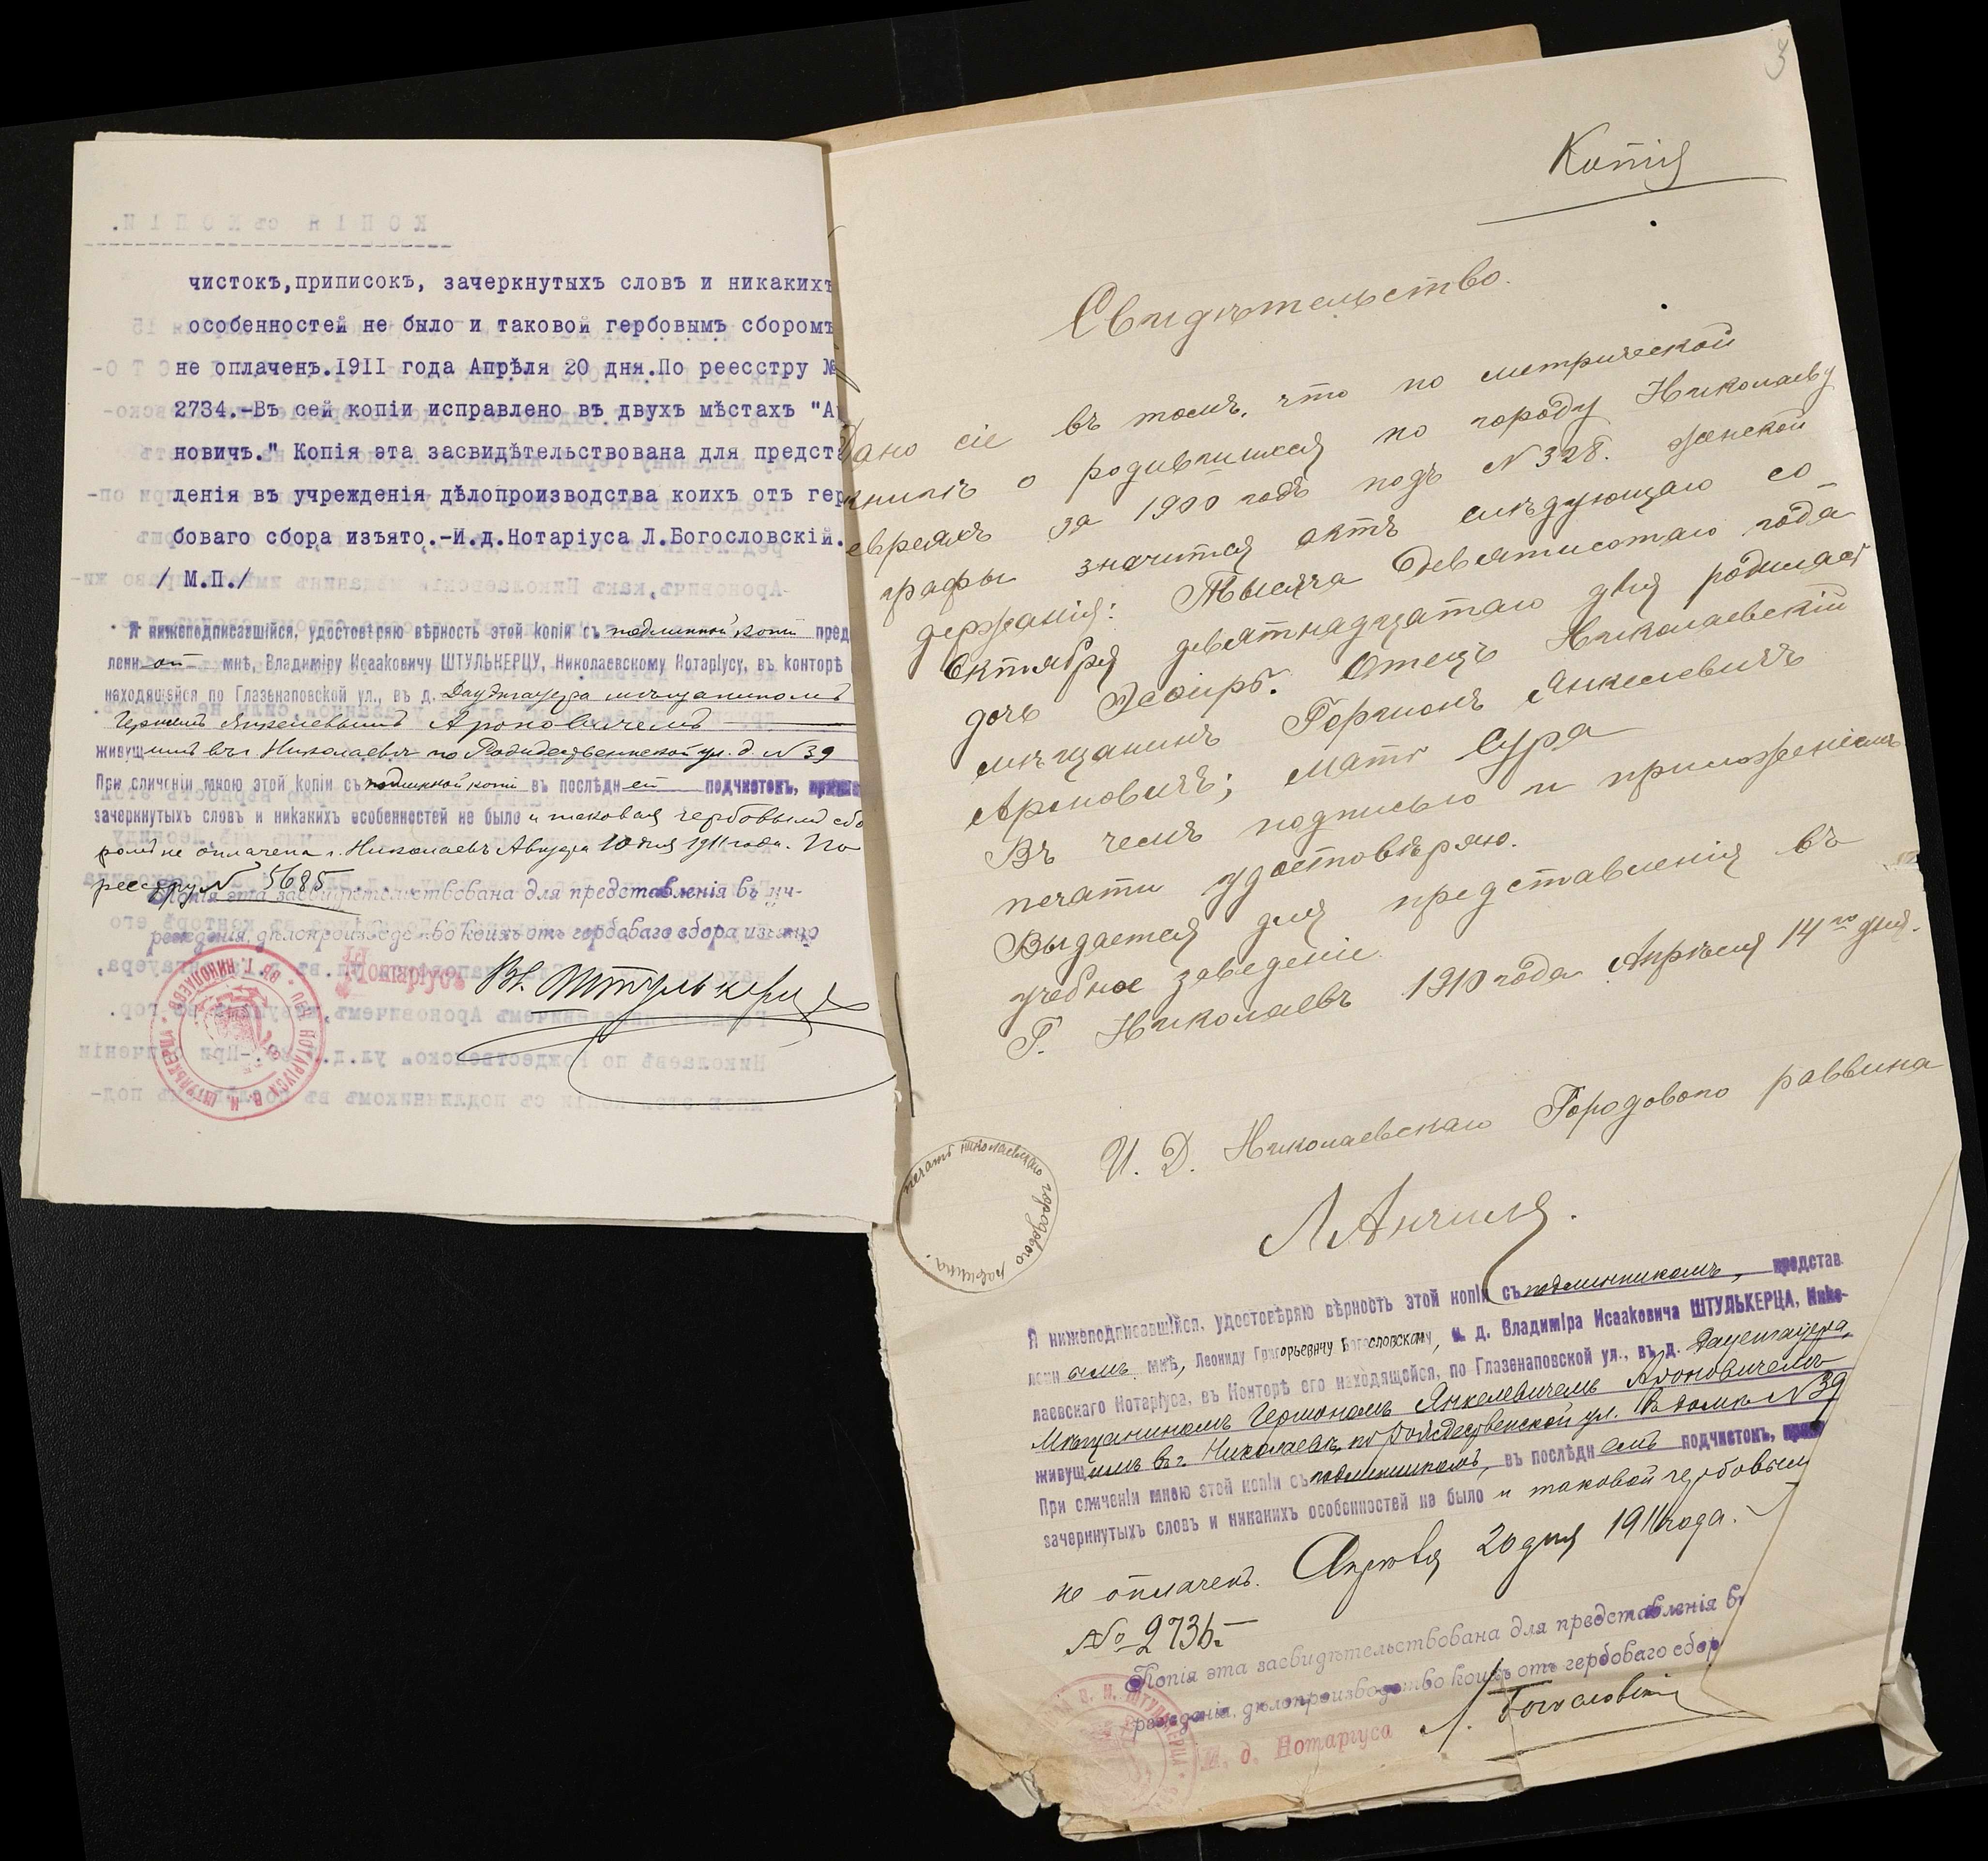 чистокъ,приписокъ, зачеркнутыхъ словъ и никакихъ
особенностей не было и таковой гербовымъ сборомъ
не оплаченъ.1911 года Апрѣля 20 дня.По реестру №
2734.-Въ сей копіи исправлено въ двухъ мѣстахъ "А
новичъ." Копія эта засвидѣтельствована для предста
ленія въ учрежденія дѣлопроизводства коихъ отъ гер
боваго сбора изъято.-И.д.Нотаріуса Л.Богословскій.
/ М.П./
Я нижеподписавшійся, удостовѣряю вѣрность этой копіи съ подлинной копіи пред
ленн ой мнѣ, Владиміру Исааковичу ШТУЛЬКЕРЦУ, Николаевскому Нотаріусу, въ конторѣ
находящейся по Глазенаповской ул., въ д. Даунгауера мѣщаниномъ
Гершономъ Янкелевымъ Ароновичемъ
живущимъ въ г. Николаевѣ по Рождественской ул. д. № 39
При сличеніи мною этой копіи съ подлинной копіи въ послѣдней подчистокъ,
зачеркнутыхъ словъ и никакихъ особенностей не было и таковая гербовымъ сбо
ромъ не оплачена г. Николаевъ Августа 10 дня 1911 года. По
реестру № 5685
Копія эта засвидѣтельствована для представленія въ уч-
режденія, дѣлопроизводство коихъ отъ гербоваго сбора изъято
Нотаріусъ Вл. Штулькерцъ
НОТАРІУСА В. И. ШТУЛЬКЕРЦА * ВЪ Г. НИКОЛАЕВѢ *
3
Копія
Свидѣтельство.
Дано сіе въ томъ, что по метрической
книгѣ о родившихся по городу Николаеву
евреяхъ за 1900 годъ подъ № 328. женской
графы значится актъ слѣдующаго со-
держанія: Тысяча девятисотаго года
Октября девятнадцатаго дня родилась
дочь Эсѳирь. Отецъ Николаевскій
мѣщанинъ Гершонъ Янкелевичъ
Ароновичъ; мать Сура
Въ чемъ подписью и приложеніемъ
печати удостовѣряю.
Выдается для представленія въ
учебное заведеніе.
Г. Николаевъ 1910 года Апрѣля 14го дня.
И. Д. Николаевскаго Городового раввина
печать николаевскаго городового раввина.
Я нижеподписавшійся, удостовѣряю вѣрность этой копіи съ подлинникомъ, представ
ленн ымъ мнѣ, Леониду Григорьевичу Богословскому, и. д. Владиміра Исааковича ШТУЛЬКЕРЦА, Нико-
лаевскаго Нотаріуса, въ Конторѣ его находящейся, по Глазенаповской ул., въ д. Даунгауера,
Мѣщаниномъ Гершономъ Янкелевичемъ Ароновичемъ
живущимъ въ г. Николаевѣ, по Рождественской ул. въ домѣ № 39
При сличеніи мною этой копіи съ подлинникомъ, въ послѣднемъ подчистокъ,
зачеркнутыхъ словъ и никакихъ особенностей не было и таковой гербовым
не оплаченъ. Апрѣля 20 дня 1911 года.
№ 2736.
Копія эта засвидѣтельствована для представленія въ
режденія, дѣлопроизводство коихъ отъ гербоваго сбор
И. д. Нотаріуса Л. Богословскій